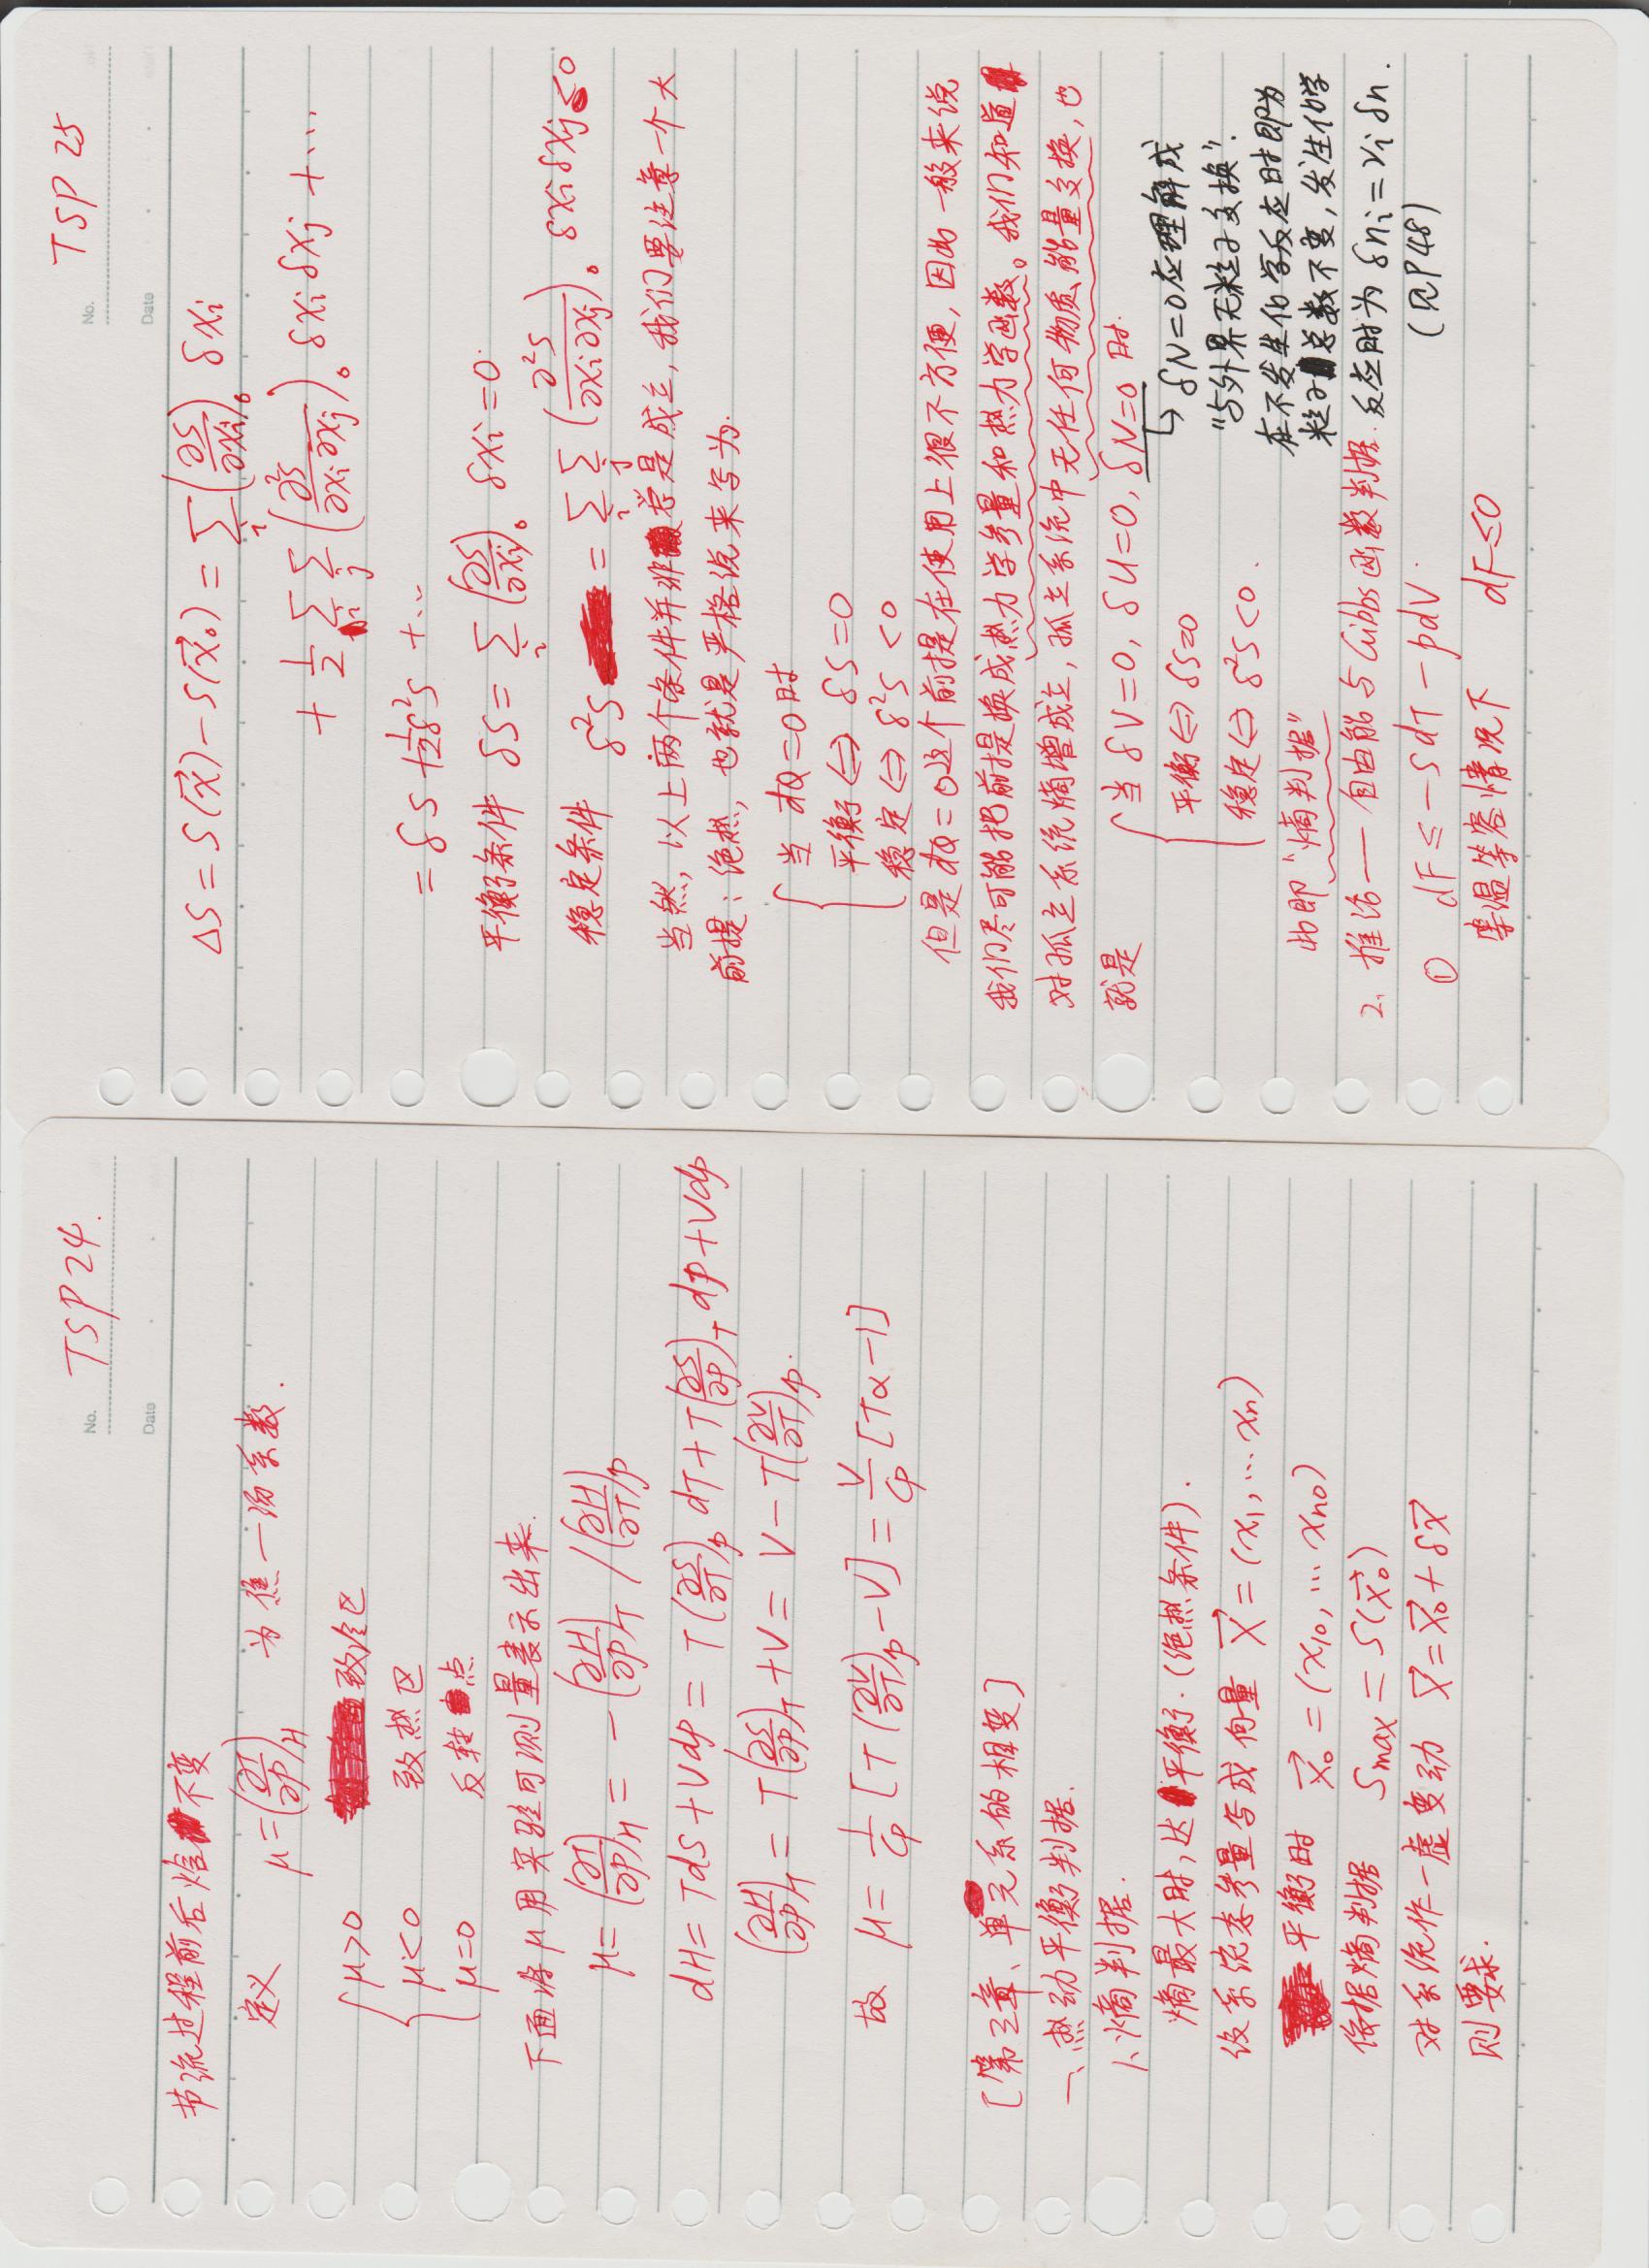 No. TSP 24.
Date
节流过程前后焓不变
定义 μ=(∂T/∂p)_H 为焦一汤系数.
μ>0 致冷区
μ<0 致热区
μ=0 反转点
下面将μ用实验可测量表示出来.
μ=(∂T/∂p)_H = -(∂H/∂p)_T /(∂H/∂T)_p
dH=TdS+Vdp= T(∂S/∂T)_p dT+T(∂S/∂p)_T dp+Vdp
(∂H/∂p)_T = T(∂S/∂p)_T +V= V-T(∂V/∂T)_p.
故 μ= 1/Cp [T(∂V/∂T)_p-V]= V/Cp [Tα-1]
[第三章、单元系的相变]
一、热动平衡判据.
1、熵判据.
熵最大时,达平衡.(绝热条件).
设系统态参量写成向量 X⃗=(x₁,…xn)
平衡时 X⃗₀=(x₁₀,…xn₀)
依据熵判据 Smax=S(X⃗₀)
对系统作一虚变动 X⃗=X⃗₀+δX⃗
则要求.
No. TSP 25
Date
ΔS=S(X⃗)-S(X⃗₀)=∑_i(∂S/∂xi)₀ δxi
+ 1/2 ∑_i ∑_j (∂²S/∂xi∂xj)₀ δxiδxj +…
=δS+1/2δ²S +…
平衡条件 δS= ∑_i (∂S/∂xi)₀ δxi=0.
稳定条件 δ²S = ∑_i ∑_j (∂²S/∂xi∂xj)₀ δxiδxj≤0
当然,以上两个条件并非总是成立,我们要注意一个大
前提:绝热,也就是严格说来写为.
当 đQ=0时
平衡⇔ δS=0
稳定⇔ δ²S<0
但是đQ=0这个前提在使用上很不方便,因此一般来说
我们尽可能把前提换成热力学参量和热力学函数。我们知道
对孤立系统熵增成立,孤立系统中无任何物质、能量交换,也
就是 当δV=0,δU=0,δN=0时.
平衡⇔δS=0
稳定⇔δ²S<0.
↳ δN=0应理解成
"与外界无粒子交换".
在不发生化学反应时即为
粒子总数不变,发生化学
反应时为 δni=νiδn.
(见P48)
此即"熵判据"
2、推论——自由能与Gibbs函数判据.
① dF≤-SdT-pdV.
等温等容情况下 dF≤0